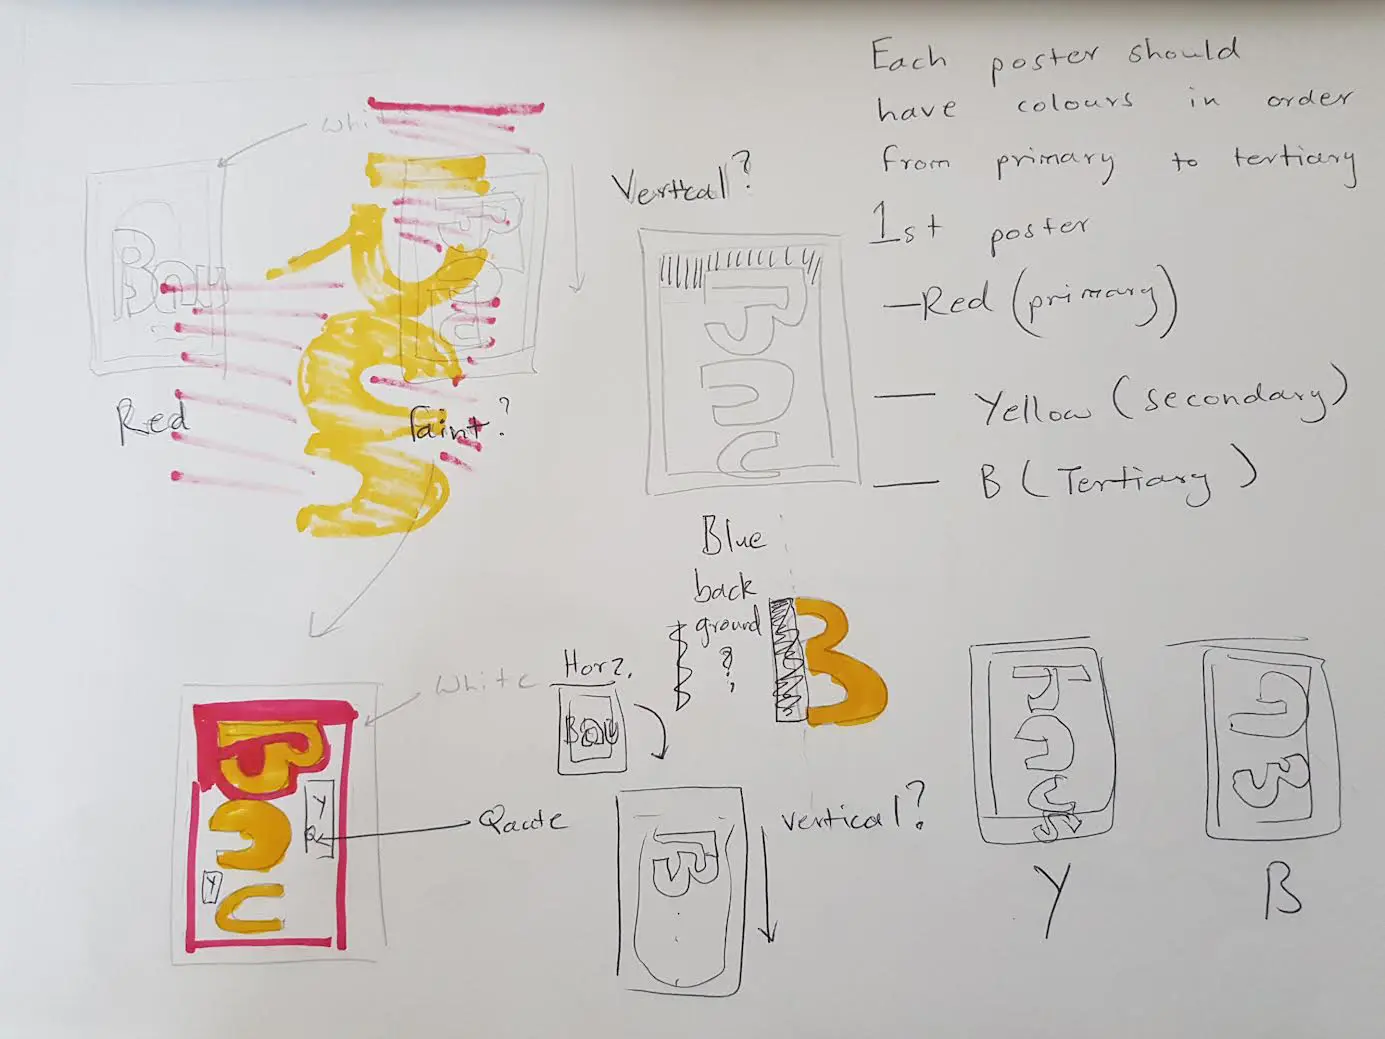 Each poster should
have colours in order
from primary to tertiary
1st poster
— Red (primary)
— Yellow (secondary)
— B (Tertiary)
White
Bau
Red
Faint?
Vertical?
Bau
Blue
back
ground
?
B
White
Horz.
Bau
Bau
Y
Y
Qaute
Vertical?
B
Y
B